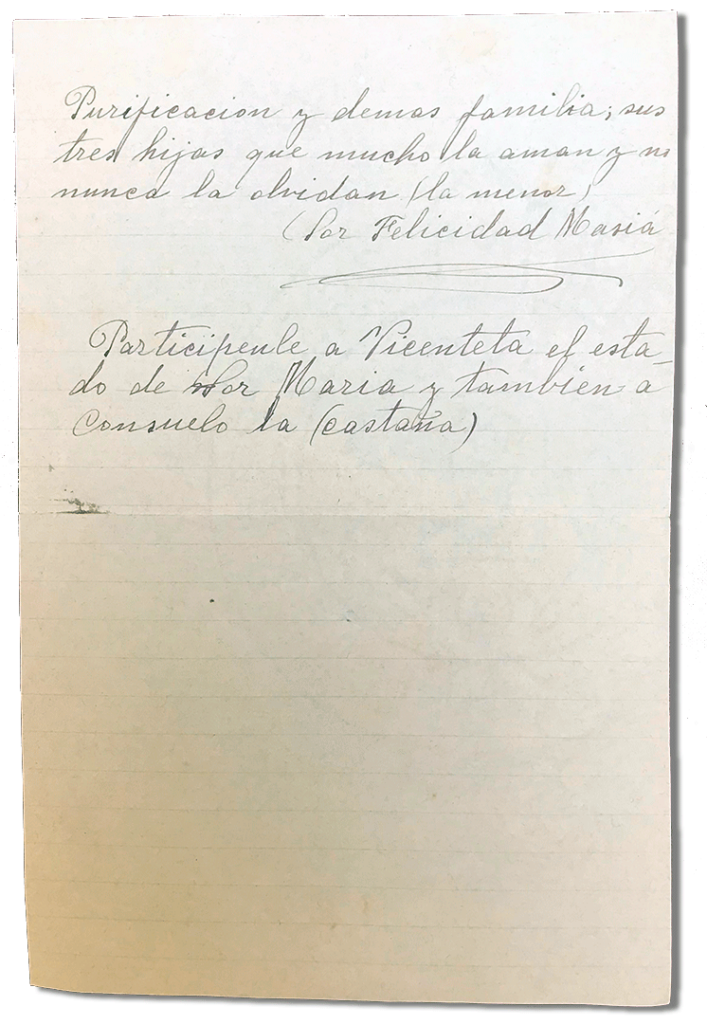 Purificacion y demas familia; sus
tres hijas que mucho la aman y no
nunca la olvidan (la menor)
(Sor Felicidad Masiá
Participenle a Vicenteta el esta-
do de Sor Maria y también a
Consuelo la (castaña)